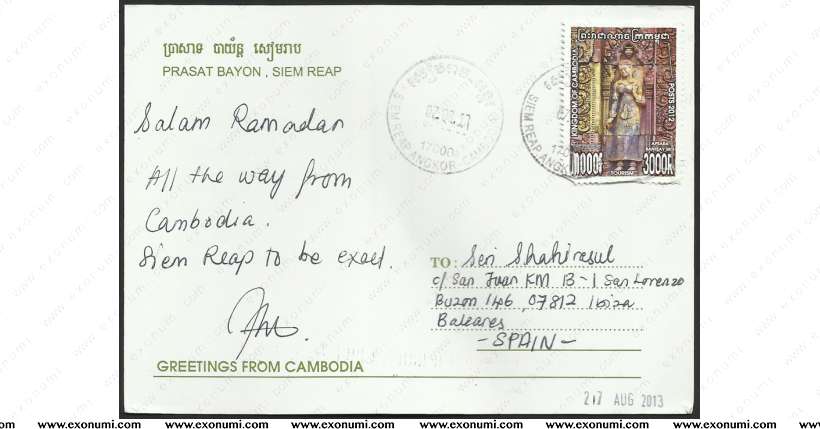 ប្រាសាទ បាយ័ន្ត សៀមរាប
PRASAT BAYON , SIEM REAP
Salam Ramadan
All the way from
Cambodia.
Siem Reap to be exact.
GREETINGS FROM CAMBODIA
SIEM REAP ANGKOR
17000
KINGDOM OF CAMBODIA
POSTS 2012
APSARA
BANTEAY SREI
3000R
TOURISM
SIEM REAP ANGKOR
TO: Seri Shahirasul
c/ San Juan KM 13-1 San Lorenzo
Buzon 146, 07812 Ibiza
Baleares
- SPAIN -
27 AUG 2013
www.exonumi.com www.exonumi.com www.exonumi.com www.exonumi.com www.exonumi.com www.exonumi.com